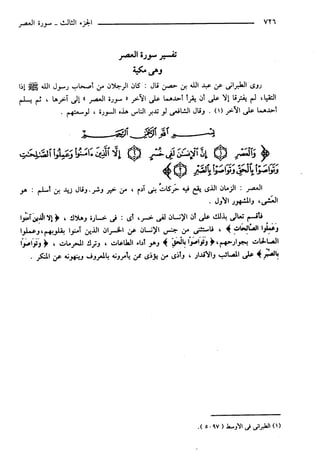 ٧٢٦ ـــــــــ الجزء الثالث ـ سورة العصر
تفسير سورة العصر
وهى مكية
روى الطبرانى عن عبد الله بن حصن قال : كان الرجلان من أصحاب رسول الله ﷺ إذا
التقيا، لم يفترقا إلا على أن يقرأ أحدهما على الآخر « سورة العصر » إلى آخرها ، ثم يسلم
أحدهما على الآخر (١) . وقال الشافعى لو تدبر الناس هذه السورة ، لوسعتهم .
بسم الله الرحمن الرحيم
﴿ وَالْعَصْرِ ۝١ إِنَّ الْإِنسَانَ لَفِي خُسْرٍ ۝٢ إِلَّا الَّذِينَ آمَنُوا وَعَمِلُوا الصَّالِحَاتِ
وَتَوَاصَوْا بِالْحَقِّ وَتَوَاصَوْا بِالصَّبْرِ ۝٣ ﴾
العصر : الزمان الذى يقع فيه حركات بنى آدم ، من خير وشر. وقال زيد بن أسلم : هو
العشى، والمشهور الأول .
فأقسم تعالى بذلك على أن الإنسان لفى خسر، أى : فى خسارة وهلاك ، ﴿ إِلَّا الَّذِينَ آمَنُوا
وَعَمِلُوا الصَّالِحَاتِ ﴾ ، فاستثنى من جنس الإنسان عن الخسران الذين آمنوا بقلوبهم، وعملوا
الصالحات بجوارحهم، ﴿ وَتَوَاصَوْا بِالْحَقِّ ﴾ وهو أداء الطاعات ، وترك المحرمات ، ﴿ وَتَوَاصَوْا
بِالصَّبْرِ ﴾ على المصائب والأقدار ، وأذى من يؤذى ممن يأمرونه بالمعروف وينهونه عن المنكر .
(١) الطبرانى فى الأوسط (٥٠٩٧) .